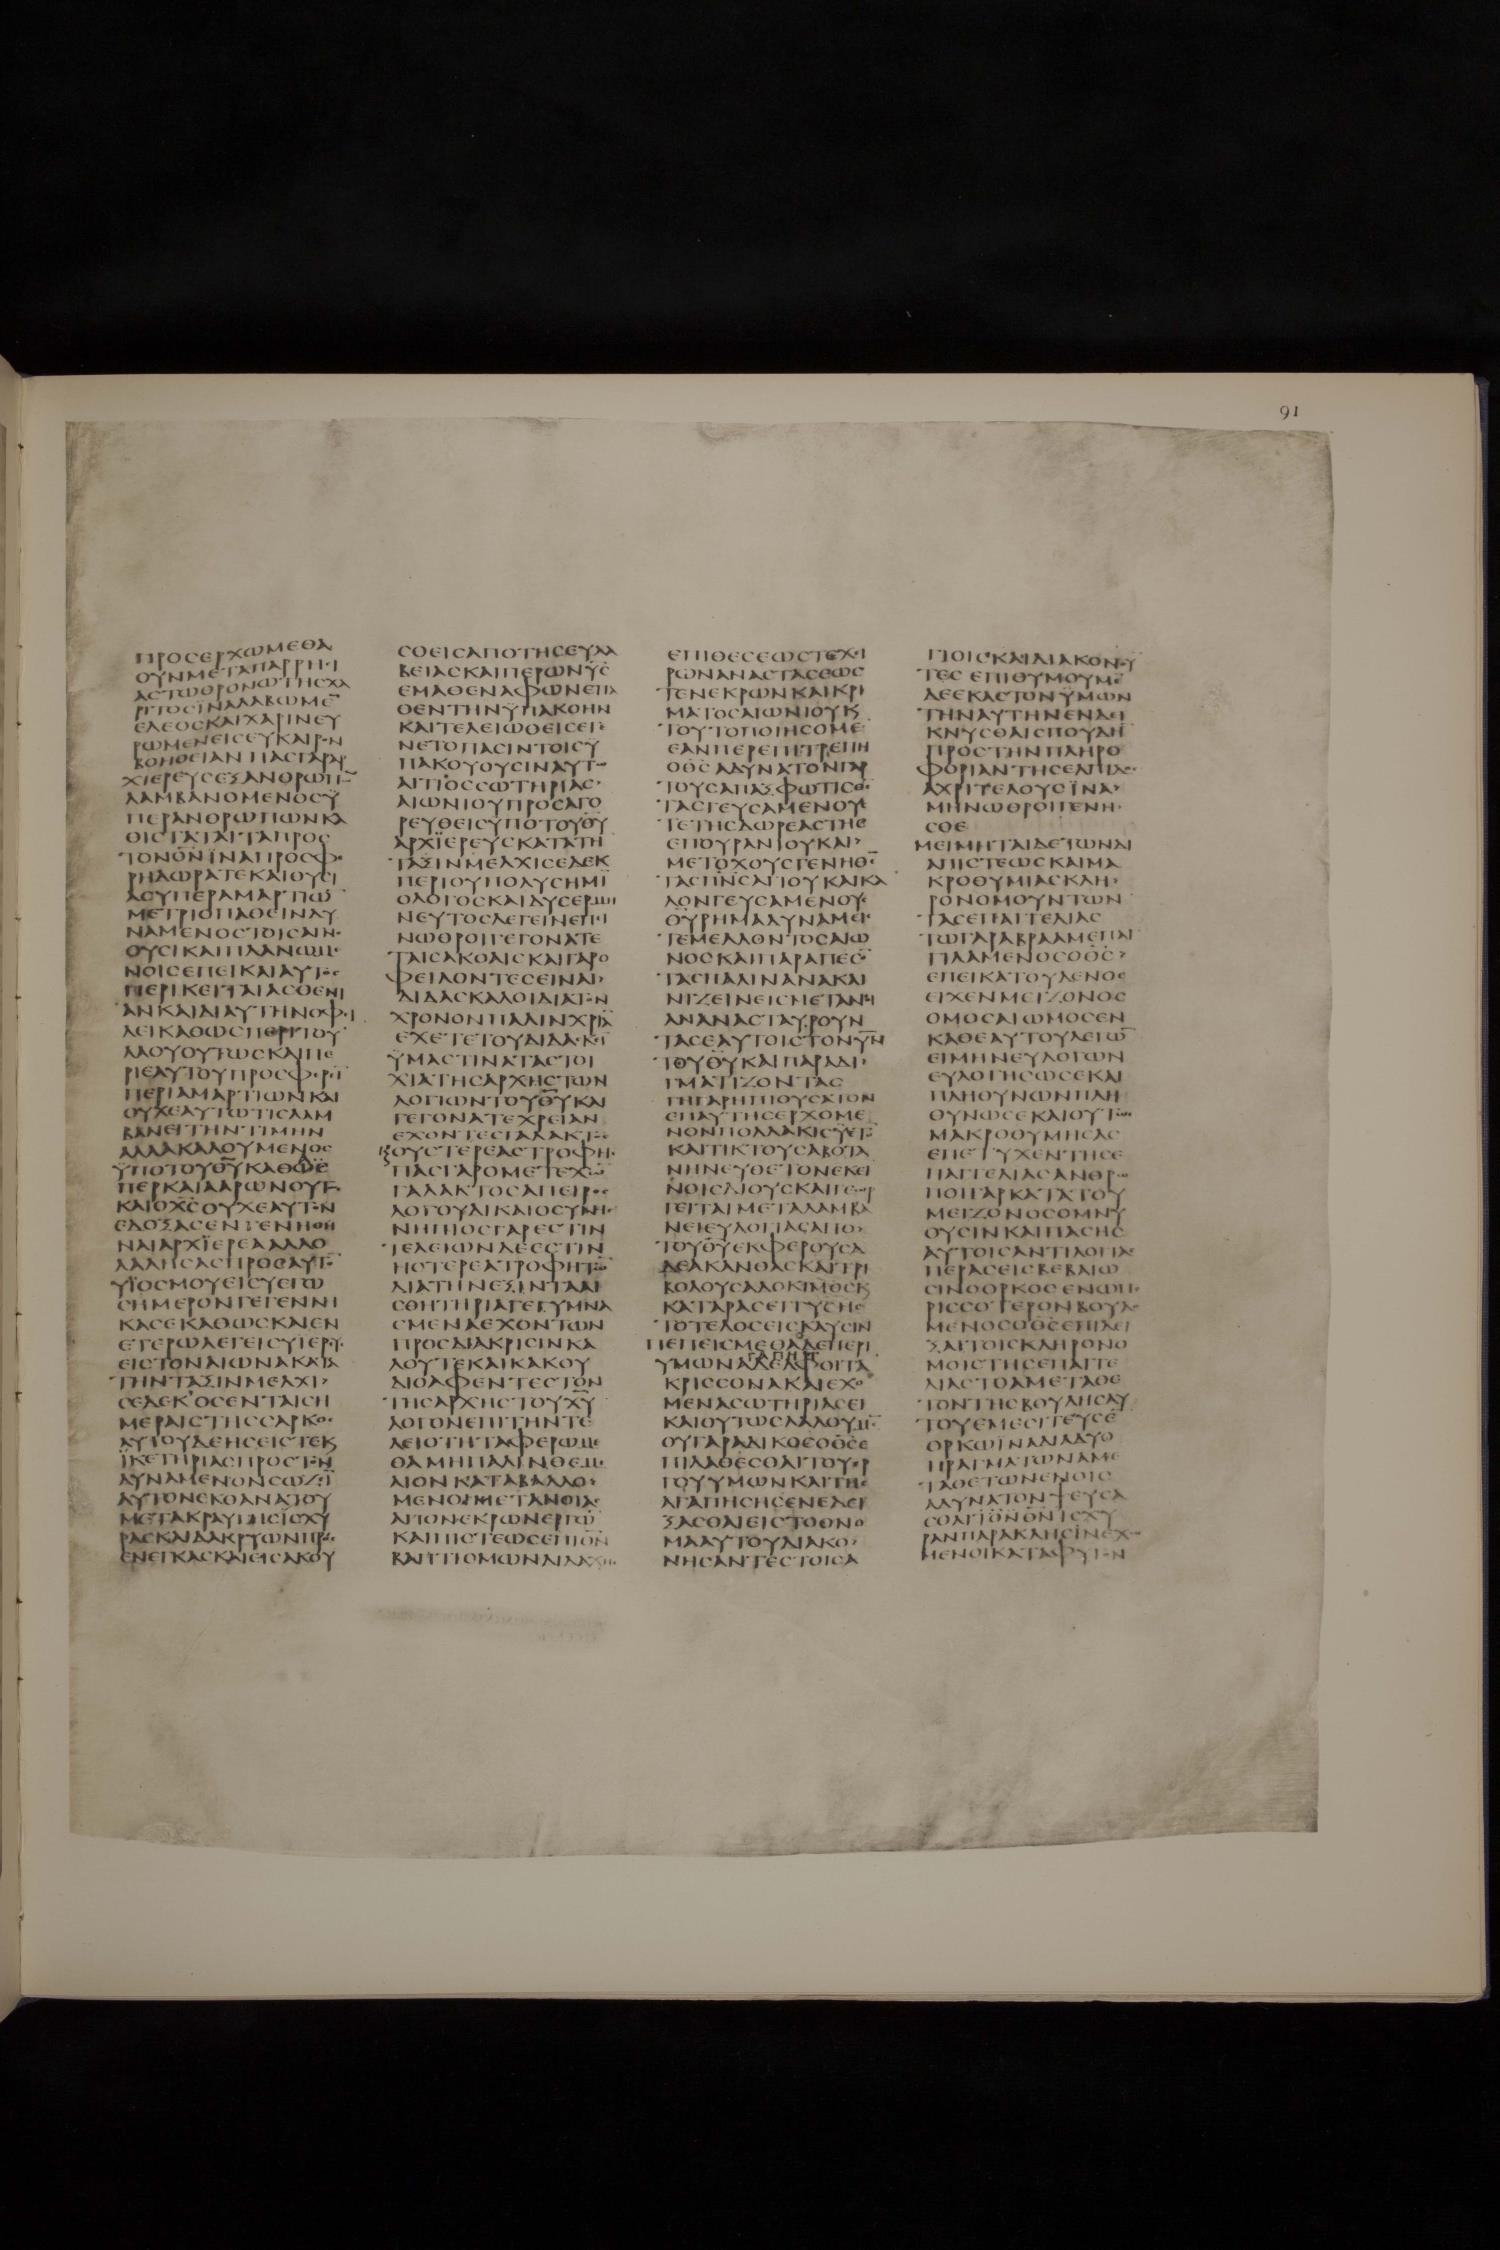 91
ΠΡΟΣΕΡΧΩΜΕΘΑ
ΟΥΝΜΕΤΑΠΑΡΡΗΣΙ
ΑΣΤΩΘΡΟΝΩΤΗΣΧΑ
ΡΙΤΟΣΪΝΑΛΑΒΩΜΕ̅
ΕΛΕΟΣΚΑΙΧΑΡΙΝΕΥ
ΡΩΜΕΝΕΙΣΕΥΚΑΙΡΟΝ
ΒΟΗΘΕΙΑΝΠΑΣΓΑΡΑΡ
ΧΙΕΡΕΥΣΕΞΑΝΘΡΩΠΩ̅
ΛΑΜΒΑΝΟΜΕΝΟΣΫ
ΠΕΡΑΝΘΡΩΠΩΝΚΑ
ΘΙΣΤΑΤΑΙΤΑΠΡΟΣ
ΤΟΝΘ̅Ν̅ΪΝΑΠΡΟΣΦΕ
ΡΗΔΩΡΑΤΕΚΑΙΘΥΣΙ
ΑΣΥΠΕΡΑΜΑΡΤΙΩ̅
ΜΕΤΡΙΟΠΑΘΕΙΝΔΥ
ΝΑΜΕΝΟΣΤΟΙΣΑΓΝΟ
ΟΥΣΙΚΑΙΠΛΑΝΩΜΕ
ΝΟΙΣΕΠΕΙΚΑΙΑΥΤΟΣ
ΠΕΡΙΚΕΙΤΑΙΑΣΘΕΝΙ
ΑΝΚΑΙΔΙΑΥΤΗΝΟΦΙ
ΛΕΙΚΑΘΩΣΠΕΡΙΤΟΥ
ΛΑΟΥΟΥΤΩΣΚΑΙΠΕ
ΡΙΕΑΥΤΟΥΠΡΟΣΦΕΡΙ̅
ΠΕΡΙΑΜΑΡΤΙΩΝΚΑΙ
ΟΥΧΕΑΥΤΩΤΙΣΛΑΜ
ΒΑΝΕΙΤΗΝΤΙΜΗΝ
ΑΛΛΑΚΑΛΟΥΜΕΝΟΣ
ΫΠΟΤΟΥΘ̅Υ̅ΚΑΘΩΣ
ΠΕΡΚΑΙΑΑΡΩΝΟΥΤΩΣ
ΚΑΙΟΧ̅Σ̅ΟΥΧΕΑΥΤΟΝ
ΕΔΟΞΑΣΕΝΓΕΝΗΘΗ
ΝΑΙΑΡΧΪΕΡΕΑΑΛΛΟ
ΛΑΛΗΣΑΣΠΡΟΣΑΥΤΟ̅
ΥΪΟΣΜΟΥΕΙΣΥΕΓΩ
ΣΗΜΕΡΟΝΓΕΓΕΝΝΗ
ΚΑΣΕΚΑΘΩΣΚΑΙΕΝ
ΕΤΕΡΩΛΕΓΕΙΣΥΪΕΡΕΥΣ
ΕΙΣΤΟΝΑΙΩΝΑΚΑΤΑ
ΤΗΝΤΑΞΙΝΜΕΛΧΙ
ΣΕΔΕΚΟΣΕΝΤΑΙΣΗ
ΜΕΡΑΙΣΤΗΣΣΑΡΚΟΣ
ΑΥΤΟΥΔΕΗΣΕΙΣΤΕΚ
ΪΚΕΤΗΡΙΑΣΠΡΟΣΤΟΝ
ΔΥΝΑΜΕΝΟΝΣΩΖΙ̅
ΑΥΤΟΝΕΚΘΑΝΑΤΟΥ
ΜΕΤΑΚΡΑΥΓΗΣΪΣΧΥ
ΡΑΣΚΑΙΔΑΚΡΥΩΝΠΡΟΣ
ΕΝΕΓΚΑΣΚΑΙΕΙΣΑΚΟΥ
ΣΘΕΙΣΑΠΟΤΗΣΕΥΛΑ
ΒΕΙΑΣΚΑΙΠΕΡΩΝΥ̅Σ̅
ΕΜΑΘΕΝΑΦΩΝΕΠΑ
ΘΕΝΤΗΝΫΠΑΚΟΗΝ
ΚΑΙΤΕΛΕΙΩΘΕΙΣΕΓΕ
ΝΕΤΟΠΑΣΙΝΤΟΙΣΫ
ΠΑΚΟΥΟΥΣΙΝΑΥΤΩ
ΑΙΤΙΟΣΣΩΤΗΡΙΑΣ
ΑΙΩΝΙΟΥΠΡΟΣΑΓΟ
ΡΕΥΘΕΙΣΥΠΟΤΟΥΘ̅Υ̅
ΑΡΧΪΕΡΕΥΣΚΑΤΑΤΗ
ΤΑΞΙΝΜΕΛΧΙΣΕΔΕΚ
ΠΕΡΙΟΥΠΟΛΥΣΗΜΙ̅
ΟΛΟΓΟΣΚΑΙΔΥΣΕΡΜΗ
ΝΕΥΤΟΣΛΕΓΕΙΝΕΠΕΙ
ΝΩΘΡΟΙΓΕΓΟΝΑΤΕ
ΤΑΙΣΑΚΟΑΙΣΚΑΙΓΑΡΟ
ΦΕΙΛΟΝΤΕΣΕΙΝΑΙ
ΔΙΔΑΣΚΑΛΟΙΔΙΑΤΟΝ
ΧΡΟΝΟΝΠΑΛΙΝΧΡΙΑ̅
ΕΧΕΤΕΤΟΥΔΙΔΑΣΚΙ̅
ΫΜΑΣΤΙΝΑΤΑΣΤΟΙ
ΧΙΑΤΗΣΑΡΧΗΣΤΩΝ
ΛΟΓΙΩΝΤΟΥΘ̅Υ̅ΚΑΙ
ΓΕΓΟΝΑΤΕΧΡΕΙΑΝ
ΕΧΟΝΤΕΣΓΑΛΑΚΤΟΣ
ΟΥΣΤΕΡΕΑΣΤΡΟΦΗΣ
ΠΑΣΓΑΡΟΜΕΤΕΧΩ̅
ΓΑΛΑΚΤΟΣΑΠΕΙΡΟΣ
ΛΟΓΟΥΔΙΚΑΙΟΣΥΝΗΣ
ΝΗΠΙΟΣΓΑΡΕΣΤΙΝ
ΤΕΛΕΙΩΝΔΕΕΣΤΙΝ
ΗΣΤΕΡΕΑΤΡΟΦΗΤΩ̅
ΔΙΑΤΗΝΕΞΙΝΤΑΑΙ
ΣΘΗΤΗΡΙΑΓΕΓΥΜΝΑ
ΣΜΕΝΑΕΧΟΝΤΩΝ
ΠΡΟΣΔΙΑΚΡΙΣΙΝΚΑ
ΛΟΥΤΕΚΑΙΚΑΚΟΥ
ΔΙΟΑΦΕΝΤΕΣΤΟΝ
ΤΗΣΑΡΧΗΣΤΟΥΧ̅Υ̅
ΛΟΓΟΝΕΠΙΤΗΝΤΕ
ΛΕΙΟΤΗΤΑΦΕΡΩΜΕ
ΘΑΜΗΠΑΛΙΝΘΕΜΕ
ΛΙΟΝΚΑΤΑΒΑΛΛΟ
ΜΕΝΟΙΜΕΤΑΝΟΙΑΣ
ΑΠΟΝΕΚΡΩΝΕΡΓΩ̅
ΚΑΙΠΙΣΤΕΩΣΕΠΙΘ̅Ν̅
ΒΑΠΤΙΣΜΩΝΔΙΔΑΧΗΣ
ΕΠΙΘΕΣΕΩΣΤΕΧΙ
ΡΩΝΑΝΑΣΤΑΣΕΩΣ
ΤΕΝΕΚΡΩΝΚΑΙΚΡΙ
ΜΑΤΟΣΑΙΩΝΙΟΥΚ
ΤΟΥΤΟΠΟΙΗΣΟΜΕ
ΕΑΝΠΕΡΕΠΙΤΡΕΠΗ
ΟΘ̅Σ̅ΑΔΥΝΑΤΟΝΓΑΡ
ΤΟΥΣΑΠΑΞΦΩΤΙΣΘΕ
ΤΑΣΓΕΥΣΑΜΕΝΟΥΣ
ΤΕΤΗΣΔΩΡΕΑΣΤΗΣ
ΕΠΟΥΡΑΝΙΟΥΚΑΙ
ΜΕΤΟΧΟΥΣΓΕΝΗΘΕ̅
ΤΑΣΠ̅Ν̅Σ̅ΑΓΙΟΥΚΑΙΚΑ
ΛΟΝΓΕΥΣΑΜΕΝΟΥΣ
Θ̅Υ̅ΡΗΜΑΔΥΝΑΜΕΙΣ
ΤΕΜΕΛΛΟΝΤΟΣΑΙΩ
ΝΟΣΚΑΙΠΑΡΑΠΕΣΟ̅
ΤΑΣΠΑΛΙΝΑΝΑΚΑΙ
ΝΙΖΕΙΝΕΙΣΜΕΤΑΝΟΙ
ΑΝΑΝΑΣΤΑΥΡΟΥΝ
ΤΑΣΕΑΥΤΟΙΣΤΟΝΥ̅Ν̅
ΤΟΥΘ̅Υ̅ΚΑΙΠΑΡΑΔΙ
ΓΜΑΤΙΖΟΝΤΑΣ
ΓΗΓΑΡΗΠΙΟΥΣΑΤΟΝ
ΕΠΑΥΤΗΣΕΡΧΟΜΕ
ΝΟΝΠΟΛΛΑΚΙΣΫΕΤΟ̅
ΚΑΙΤΙΚΤΟΥΣΑΒΟΤΑ
ΝΗΝΕΥΘΕΤΟΝΕΚΕΙ
ΝΟΙΣΔΙΟΥΣΚΑΙΓΕΩΡ
ΓΕΙΤΑΙΜΕΤΑΛΑΜΒΑ
ΝΕΙΕΥΛΟΓΙΑΣΑΠΟ
ΤΟΥΘ̅Υ̅ΕΚΦΕΡΟΥΣΑ
ΔΕΑΚΑΝΘΑΣΚΑΙΤΡΙ
ΒΟΛΟΥΣΑΔΟΚΙΜΟΣΚ
ΚΑΤΑΡΑΣΕΓΓΥΣΗΣ
ΤΟΤΕΛΟΣΕΙΣΚΑΥΣΙΝ
ΠΕΠΕΙΣΜΕΘΑΔΕΠΕΡΙ
ΓΑΠΗΤ
ΥΜΩΝΑΔΕΛΦΟΙΤΑ
ΚΡΙΣΣΟΝΑΚΑΙΕΧΟ
ΜΕΝΑΣΩΤΗΡΙΑΣΕΙ
ΚΑΙΟΥΤΩΣΛΑΛΟΥΜΕ̅
ΟΥΓΑΡΑΔΙΚΟΣΟΘ̅Σ̅Ε
ΠΙΛΑΘΕΣΘΑΙΤΟΥΕΡ
ΓΟΥΥΜΩΝΚΑΙΤΗΣ
ΑΓΑΠΗΣΗΣΕΝΕΔΕΙ
ΞΑΣΘΑΙΕΙΣΤΟΟΝΟ
ΜΑΑΥΤΟΥΔΙΑΚΟ
ΝΗΣΑΝΤΕΣΤΟΙΣΑ
ΓΙΟΙΣΚΑΙΔΙΑΚΟΝΟΥ̅
ΤΕΣΕΠΙΘΥΜΟΥΜΕ̅
ΔΕΕΚΑΣΤΟΝΫΜΩΝ
ΤΗΝΑΥΤΗΝΕΝΔΙ
ΚΝΥΣΘΑΙΣΠΟΥΔΗ̅
ΠΡΟΣΤΗΝΠΛΗΡΟ
ΦΟΡΙΑΝΤΗΣΕΛΠΙΔΟΣ
ΑΧΡΙΤΕΛΟΥΣΪΝΑ
ΜΗΝΩΘΡΟΙΓΕΝΗ
ΣΘΕ
ΜΕΙΜΗΤΑΙΔΕΤΩΝΔΙ
ΑΠΙΣΤΕΩΣΚΑΙΜΑ
ΚΡΟΘΥΜΙΑΣΚΛΗ
ΡΟΝΟΜΟΥΝΤΩΝ
ΤΑΣΕΠΑΓΓΕΛΙΑΣ
ΤΩΓΑΡΑΒΡΑΑΜΕΠΑΓ
ΓΙΛΑΜΕΝΟΣΟΘ̅Σ̅
ΕΠΕΙΚΑΤΟΥΔΕΝΟΣ
ΕΙΧΕΝΜΕΙΖΟΝΟΣ
ΟΜΟΣΑΙΩΜΟΣΕΝ
ΚΑΘΕΑΥΤΟΥΛΕΓΩ̅
ΕΙΜΗΝΕΥΛΟΓΩΝ
ΕΥΛΟΓΗΣΩΣΕΚΑΙ
ΠΛΗΘΥΝΩΝΠΛΗ
ΘΥΝΩΣΕΚΑΙΟΥΤΩΣ
ΜΑΚΡΟΘΥΜΗΣΑΣ
ΕΠΕΤΥΧΕΝΤΗΣΕ
ΠΑΓΓΕΛΙΑΣΑΝΘΡΩ
ΠΟΙΓΑΡΚΑΤΑΤΟΥ
ΜΕΙΖΟΝΟΣΟΜΝΥ
ΟΥΣΙΝΚΑΙΠΑΣΗΣ
ΑΥΤΟΙΣΑΝΤΙΛΟΓΙΑΣ
ΠΕΡΑΣΕΙΣΒΕΒΑΙΩ
ΣΙΝΟΟΡΚΟΣΕΝΩΠΕ
ΡΙΣΣΟΤΕΡΟΝΒΟΥΛΟ
ΜΕΝΟΣΟΘ̅Σ̅ΕΠΙΔΕΙ
ΞΑΙΤΟΙΣΚΛΗΡΟΝΟ
ΜΟΙΣΤΗΣΕΠΑΓΓΕ
ΛΙΑΣΤΟΑΜΕΤΑΘΕ
ΤΟΝΤΗΣΒΟΥΛΗΣΑΥ
ΤΟΥΕΜΕΣΙΤΕΥΣΕ̅
ΟΡΚΩΪΝΑΔΙΑΔΥΟ
ΠΡΑΓΜΑΤΩΝΑΜΕ
ΤΑΘΕΤΩΝΕΝΟΙΣ
ΑΔΥΝΑΤΟΝΨΕΥΣΑ
ΣΘΑΙΤΟ̅Ν̅Θ̅Ν̅ΪΣΧΥ
ΡΑΝΠΑΡΑΚΛΗΣΙΝΕΧΩ
ΜΕΝΟΙΚΑΤΑΦΥΓΟΝ